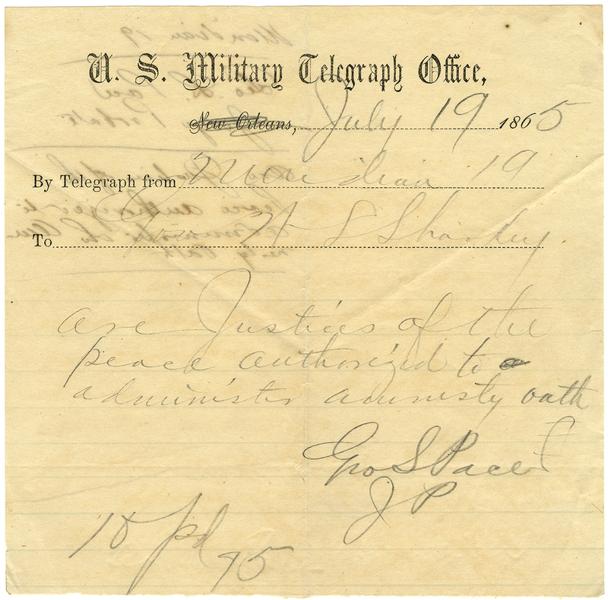 U. S. Military Telegraph Office,
New Orleans, July 19 1865
By Telegraph from Meridian 19
To Gov W L Sharkey
are Justices of the
peace authorized to
administer amnesty oath
Geo S Pace
J P
10 pd 75